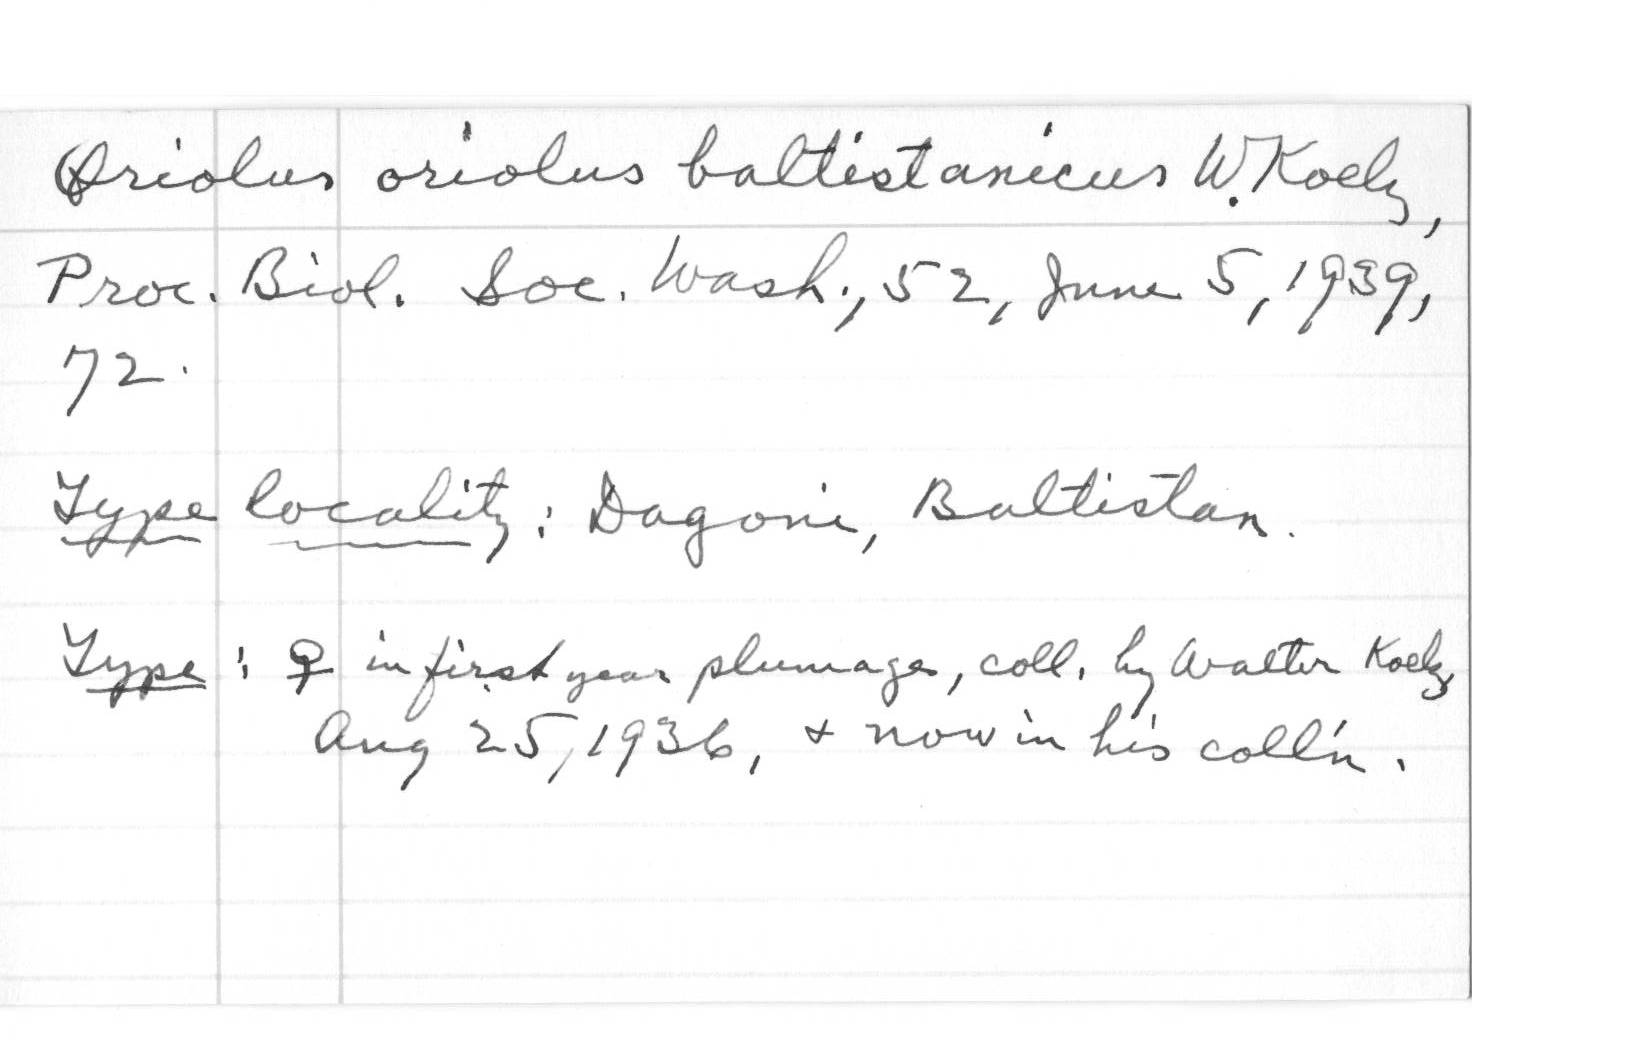 Oriolus oriolus baltistanicus W. Koelz,
Proc. Biol. Soc. Wash., 52, June 5, 1939,
72.
Type locality: Dagoni, Baltistan.
Type: ♀ in first year plumage, coll. by Walter Koelz,
Aug 25, 1936, + now in his coll'n.